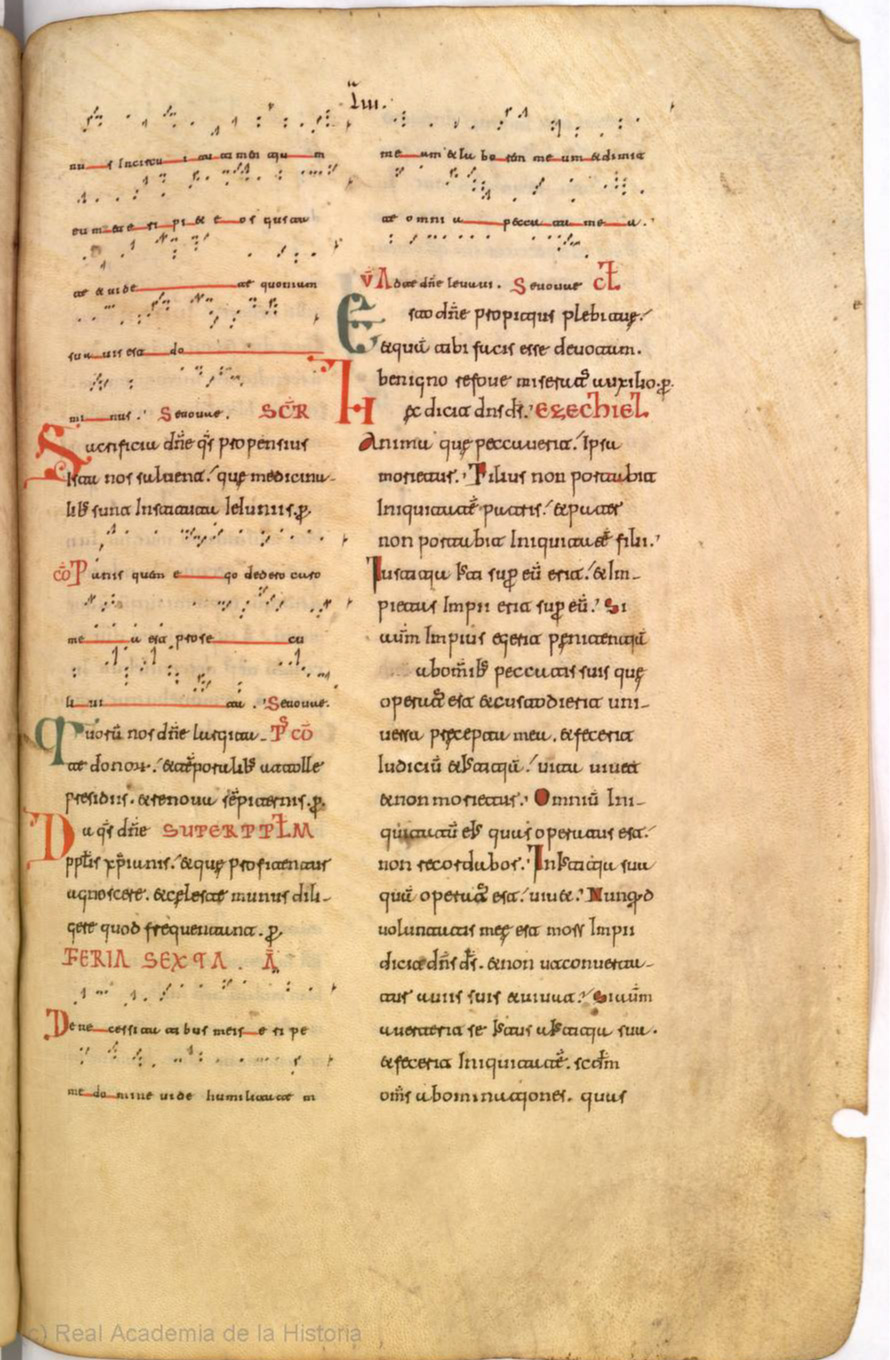 liii.
nu s Incircu i tu ti men tiu m
eum et e ri pi & e os gusta
te & uide te quoniam
sua uis est do
mi nus. Seuouae. SCR
Sacrificia dñe q̄s propensius
ista nos saluent. que medicina-
lib; sunt Instituta Ieiuniis. p.
cō Panis quem e go dedero caro
me a est pro se cu
li ui ta. Seuouae.
Quorū nos dñe largita- Ps cō
te donor. & tēporalib; attolle
presidiis. & renoua sēpiternis. p.
Da q̄s dñe SUPER PPLM
pplis xp̄ianis. & que profitentur
agnoscere. & celeste munus dili-
gere quod frequentant. p.
FERIA SEXTA. Ā
De ne cessita ti bus meis e ri pe
me do mine uide humilitate m
me am & la bo rem me um & dimit
te omni a pecca ta me a.
V̄ Ad te dñe leuaui. Seuouae CL
Esto dñe propitius plebi tue.
& quā tibi facis esse deuotam.
benigno refoue miserat auxilio. p.
Hec dicit dns ds. EZECHIEL
Anima que peccauerit. Ipsa
morietur. Filius non portabit
Iniquitatē patris. & pater
non portabit Iniquitatē filii.
Iustitia Isti sup eū erit. & Im-
pietas Impii erit sup eū. Si
autm Impius egerit penitentiā
ab omīb; peccatis suis que
operat est & custodierit uni-
uersa precepta mea. & fecerit
Iudiciū & Istitiā. uita uiuet
& non morietur. Omniū Ini-
quitatū eius quas operatus est.
non recordabor. In Istitia sua
quā operat est. uiuet. Nunqd
uoluntatis mee est mors Impii
dicit dns ds. & non ut conuerta-
tur a uiis suis & uiuat. Si autm
auerterit se Istus a Istitia sua.
& fecerit Iniquitatē. scdm
oms abominationes. quas
(c) Real Academia de la Historia